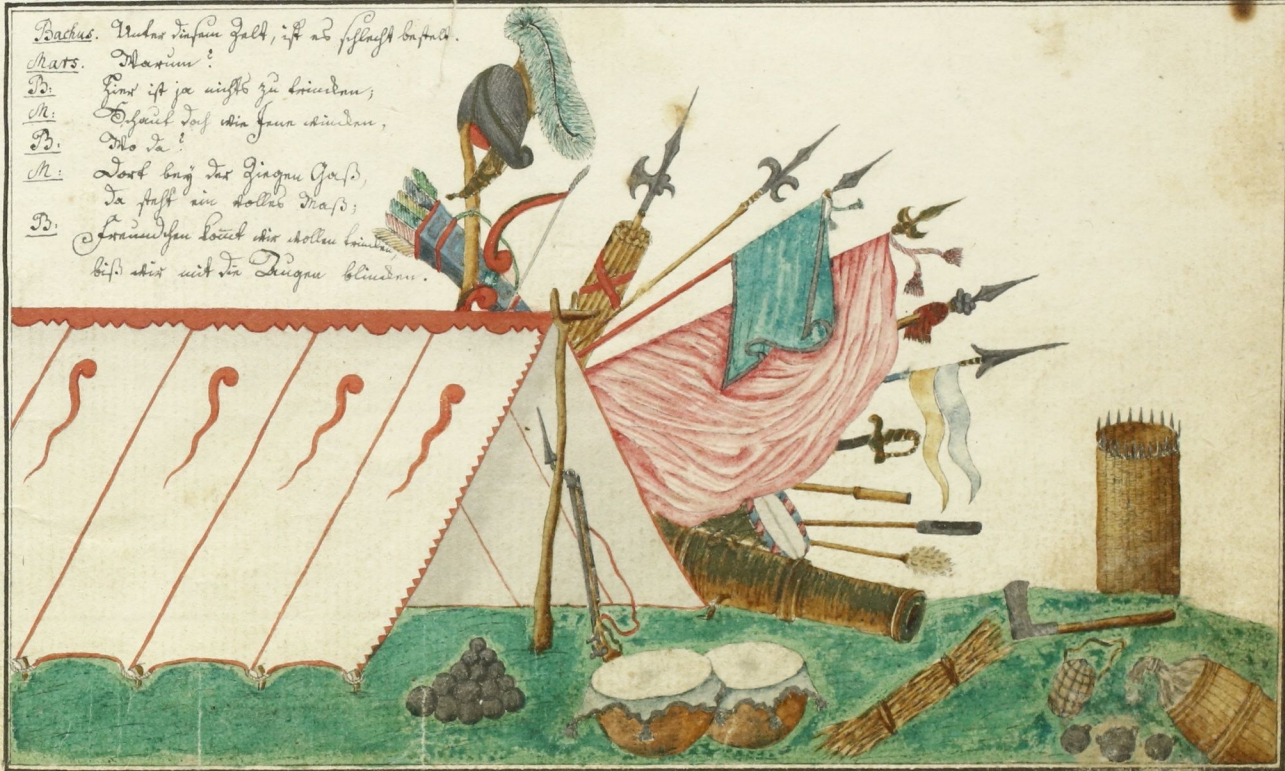 Bachus. Unter diesem Zelt, ist es schlecht bestelt.
Mars. Warum?
B: Hier ist ja nichts zu trincken;
M: Schaut doch wie Jene wincken,
B. Wo da?
M: Dort bey der Ziegen Gaß,
da steht ein volles Maß;
B: Freundchen kom̅t wir wollen trincken,
biß wir mit die Augen blincken.